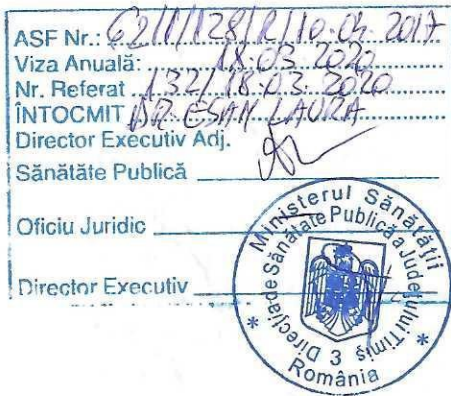 ASF Nr.: 62/1/128/R/10.04.2017
Viza Anuală: 18.03.2020
Nr. Referat 132/18.03.2020
ÎNTOCMIT DR. ESAN LAURA
Director Executiv Adj.
Sănătăte Publică
Oficiu Juridic
Director Executiv
Ministerul Sănătății
Direcția de Sănătate Publică a Județului Timiș
3
România